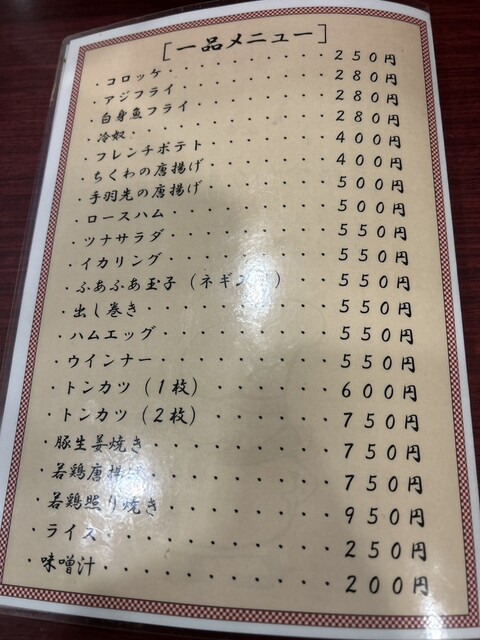 ［一品メニュー］
・コロッケ・・・・・・・・・250円
・アジフライ・・・・・・・・280円
・白身魚フライ・・・・・・・280円
・冷奴・・・・・・・・・・・280円
・フレンチポテト・・・・・・400円
・ちくわの唐揚げ・・・・・・400円
・手羽先の唐揚げ・・・・・・500円
・ロースハム・・・・・・・・500円
・ツナサラダ・・・・・・・・550円
・イカリング・・・・・・・・550円
・ふあふあ玉子（ネギ）・・550円
・出し巻き・・・・・・・・・550円
・ハムエッグ・・・・・・・・550円
・ウインナー・・・・・・・・550円
・トンカツ（1枚）・・・・・・600円
・トンカツ（2枚）・・・・・・750円
・豚生姜焼き・・・・・・・・750円
・若鶏唐揚げ・・・・・・・・750円
・若鶏照り焼き・・・・・・・950円
・ライス・・・・・・・・・・250円
・味噌汁・・・・・・・・・・200円